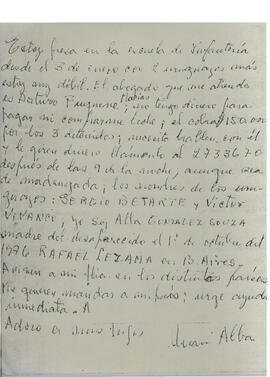 Estoy presa en la escuela de Infantería
desde el 3 de enero con 2 uruguayos más
estoy muy débil. El abogado que me atiende
es Arturo
Matías
; no tengo dinero para
pagar ni comprarme leche; el cobra $150.000
por los 3 detenidos; necesito hablen con él
y le giren dinero llamando al 2733670
después de las 9 de la noche, aunque sea
de madrugada; los nombres de los uru-
guayos: SERGIO BETARTE y Victor
VIVANCO; yo Soy Alba GONZALEZ SOUZA
madre del desaparecido el 1º de octubre del
1976 RAFAEL LEZAMA en B. Aires.
Avisen a mi flia. en los distintos países
Me quieren mandar a mi país; urge ayuda
inmediata. A
Adoro a mis hijos
Alba